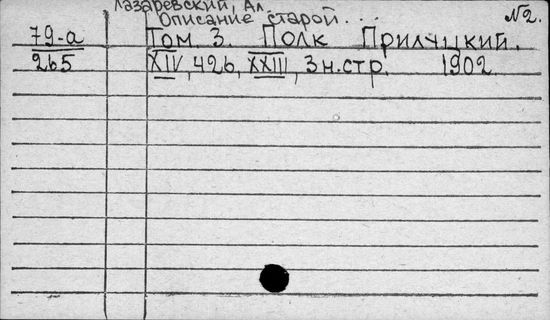 Лазаревский, Ал.
Описание старой... №2.
79-а Том. 3. Полк Прилуцкий.
265 XIV, 426, XXIII, 3 н.стр. 1902.